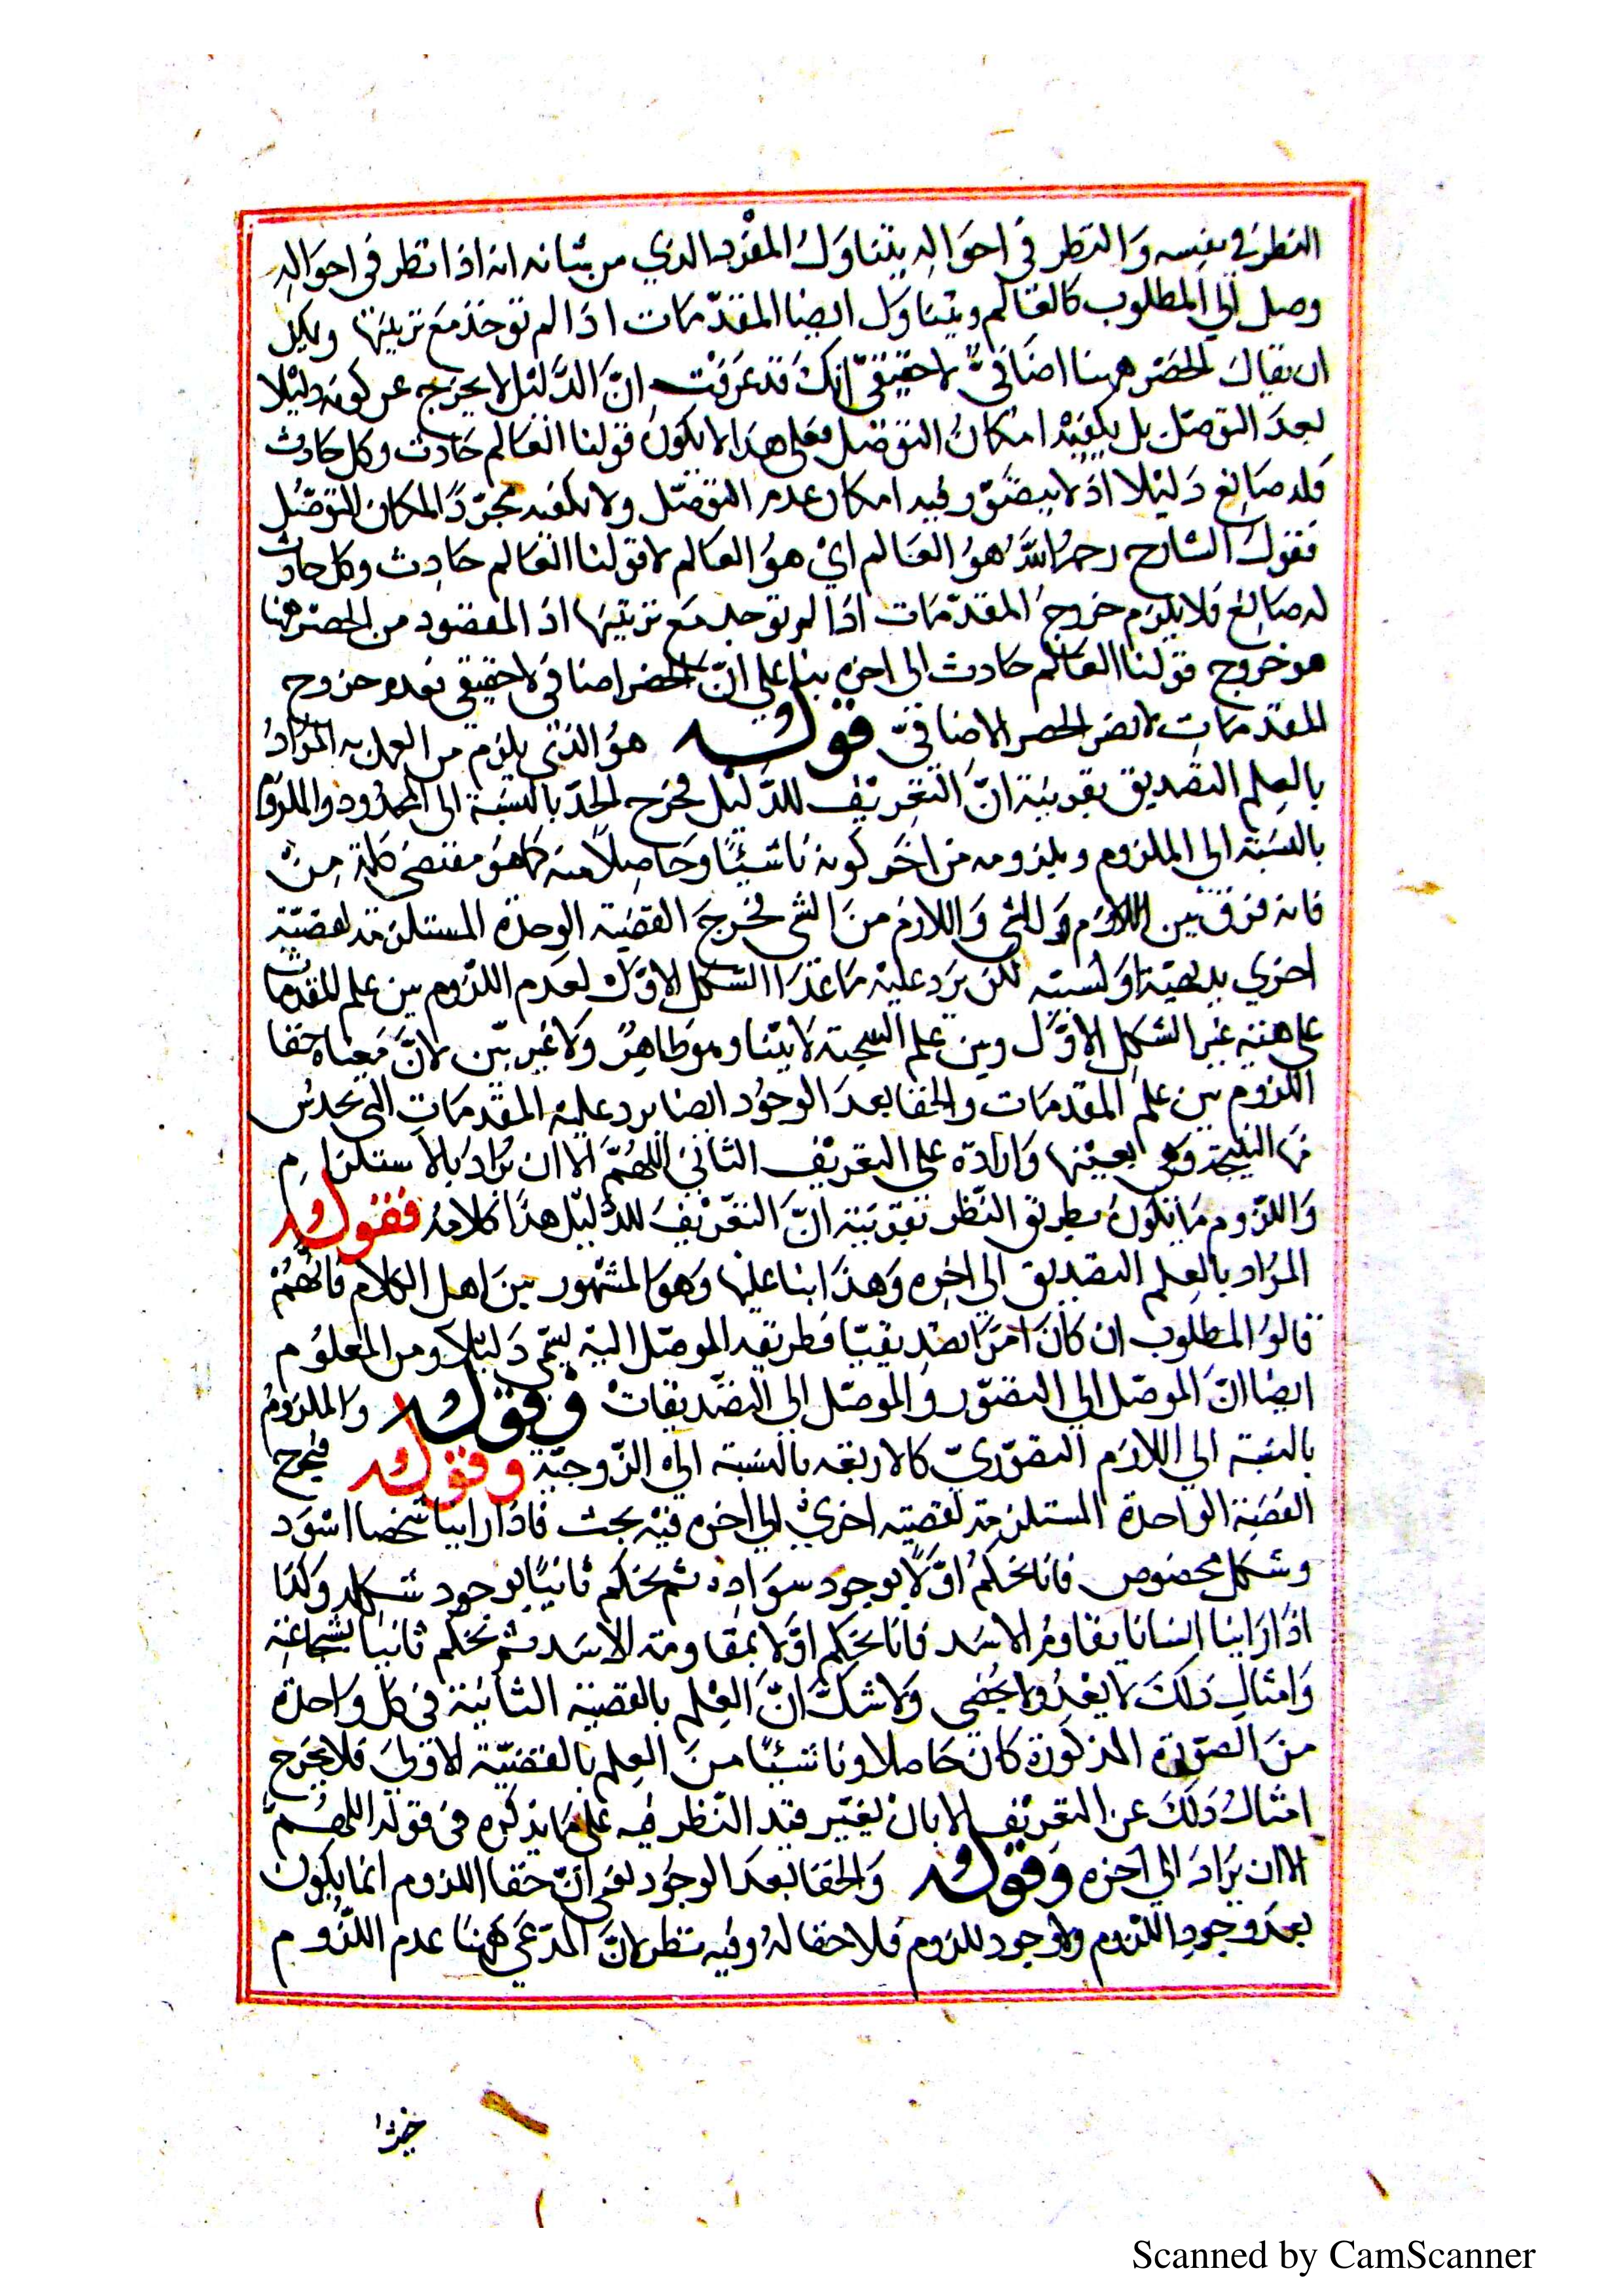 النظر في نفسه وَالنظر في احوَاله يتناوَلُ المفرد الذي من شانه انه اذا نظر في احوَاله
وصل الي المطلوب كالعَالم ويتناوَل ايضا المقدّمَات اذا لم توخذ مَع ترتيبها
ان يقالَ الحصر ههنا اضَافيٌّ لا حقيقيّ انكَ قد عَرفت انّ الدَّليْل لا يخرج عن كونه دليْلا
بعدَ التوصّل بل يكفيْه امكانُ التوصّل فعلى هذا لا يكونُ قولنا العَالم حَادث وكل حَادث
فله صَانع دَليْلا اذ لا يتصَوّر فيه امكان عدم التوصّل ولا يكفيه مجرّدُ امكان التوصّل
فقولُ الشارح رحمهُ اللهُ هوُ العَالم ايْ هوُ العَالم لا قولنا العَالم حَادِث وكل حادث
له صَانع فلا يلزم خروجُ المقدّمَات اذا لم توخد مَع ترتيبها اذ المقصُود من الحصر هنا
هو خروج قولنا العَالم حادث الى اخره بنا على انّ الحصر اضافي لا حقيقي فعدم خروج
المقدّمَاتِ لا يضر الحصر الاضافيّ قوله هوُ الذي يلزم من العلم به المرَادُ
بالعِلم التصديق بقرينة انّ التعْريْف للدّليْل فخرج الحدّ بالنسبَة الى المحدُود والملزوم
بالنسبَة الى الملزوم ويلزومه من اخَر كونه نَاشيْئًا وحَاصِلاً منه كمَا هوَ مقتضى كلمَة مِنْ
فانه فرق بين اللازم للشي وَاللازم منَ الشي فخرجَ القضيَة الوحدة المستلزمة لقضيّة
اخري بديهيّة اوَ كسبيّه لكن يَرد عليْه مَا عَدَا الشكل الاوّل لعدَم اللزوم بين علم المقدمات
على هيئة غيْر الشكل الاوّل وبين علم النتيجَة لا بيّنا وهوَ ظاهِرٌ وَلا غير بيّن لانّ مَعناه خفا
اللزوم بين علم المقدمَات والخفا بعدَ الوجوُد ايضا يرد عليْه المقدّمَاتِ التي تحدسُ
منها النتيجة وهي بعينها وَارادة على التعريْف الثاني اللهُمَّ الا ان يُرَادَ بالاستلزام
وَاللزوم مَا يكونُ بطريق النّظر بقرينة انّ التعْريْف للدّليْل هذا كلامهُ فقوله
المرَاد بالعِلم التصديق الي اخره وَهذا بنا عليْها وَهوَ المشهور بين اهل الكلام فانهُمْ
قالوُ المطلوب ان كانَ امرًا تصْديقيّا فطريقه الموصّل اليْه يسمّى دَليْلا ومن المعلوُم
ايضا انّ الموصّل الي التصوّر والموصّل الي التصْديقاتْ وفقوله وَالملزومُ
بالنسبَة الي اللازم التصوّريّ كالاربعَة بالنسبَة الي الزّوجيّة وقوله فيخرج
القضيَة الواحدة المستلزمة لقضيّة اخريْ الي اخره فيْه بحث فاذا رايْنا شخصا اسْوَد
وشكل مخصُوص فانا نحكمُ اوّلاً بوجود سوَادِه ثم نحكم ثانيًا بوجود شكله وَكذا
اذَا رَايْنا انسَانا يقاومُ الاسَد فانا نحكم اوّلا بمقاومَة الاسَد ثم نحكم ثانيا بشجاعَته
وَامثال ذلكَ لا يعْدُ ولا يُحْصى وَلا شكّ انّ العِلم بالقضيّة الثانيَة في كل وَاحدة
منَ الصّورة المذكورَة كانَ حَاصلا ونَاشيْئًا منَ العِلم بالقضيّة الاوْلي فلا يخرج
امثالُ ذَلكَ عن التعريْف الا بان يعْتبر قيد النّظر فيه على مَا يذكره في قوله اللهُمّ
الا ان يُرَادَ الي اخره وقوله وَالخفا بعدَ الوجُود يعني انّ خفا اللزوم انمَا يكون
بعدَ وجود اللزوم ولا وجود للزوم فلا خفا لهُ وفيه نظر لانّ المدّعَي ههنا عدم اللزُوم
Scanned by CamScanner